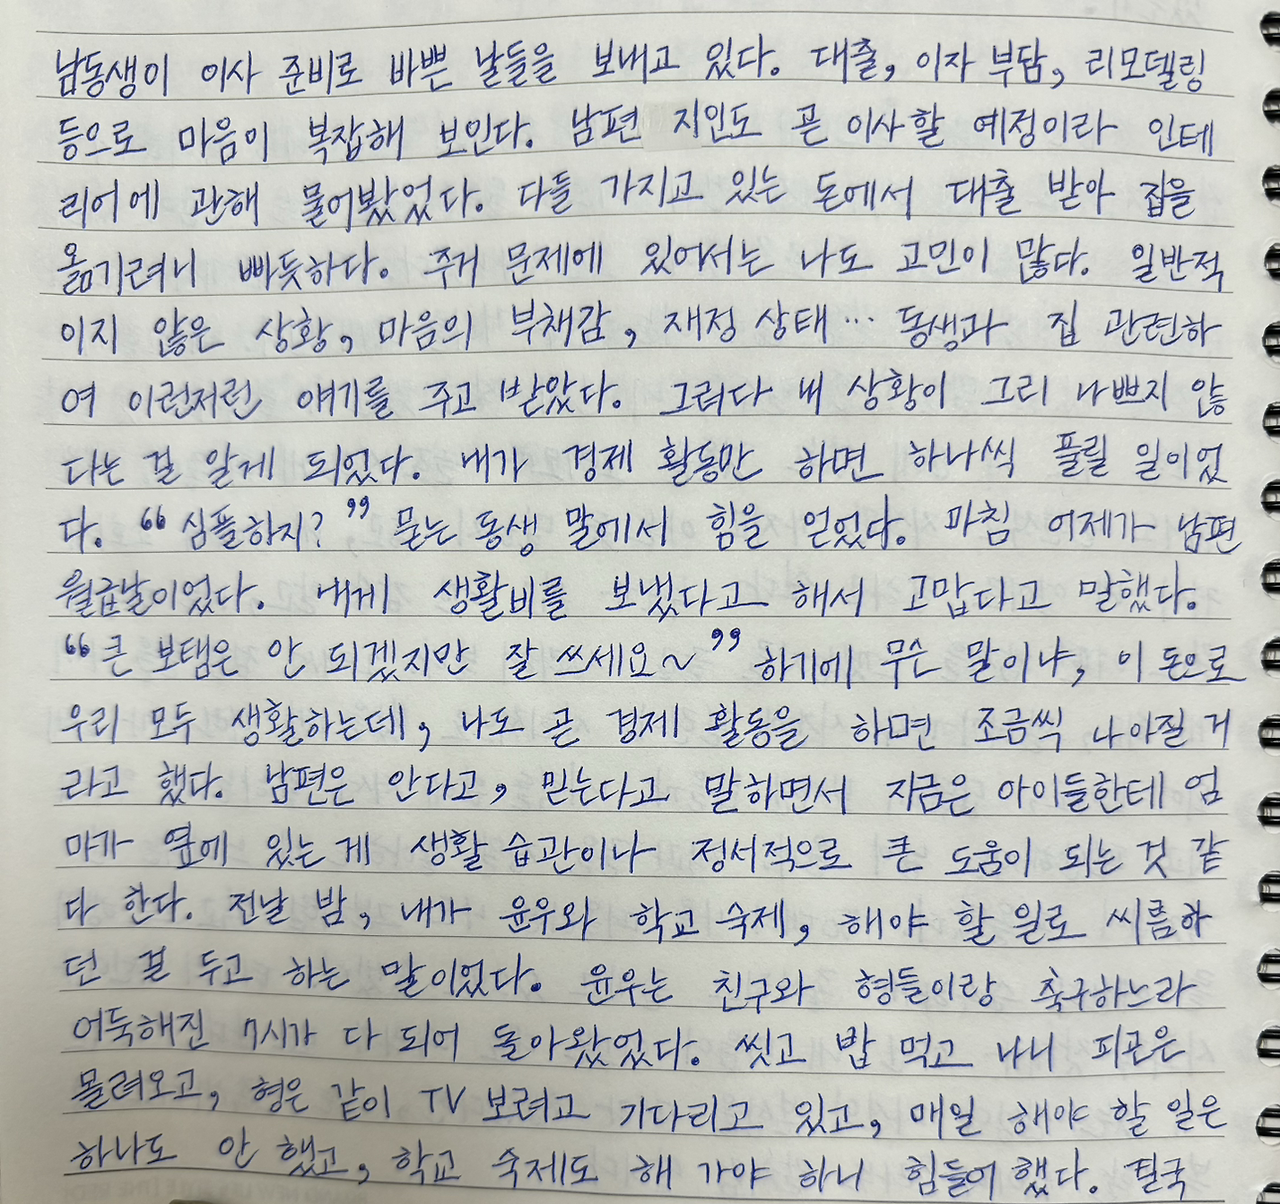 남동생이 이사 준비로 바쁜 날들을 보내고 있다. 대출, 이자 부담, 리모델링
등으로 마음이 복잡해 보인다. 남편 지인도 곧 이사할 예정이라 인테
리어에 관해 물어봤었다. 다들 가지고 있는 돈에서 대출 받아 집을
옮기려니 빠듯하다. 주거 문제에 있어서는 나도 고민이 많다. 일반적
이지 않은 상황, 마음의 부채감, 재정 상태… 동생과 집 관련하
여 이런저런 얘기를 주고 받았다. 그러다 내 상황이 그리 나쁘지 않
다는 걸 알게 되었다. 내가 경제 활동만 하면 하나씩 풀릴 일이었
다. “심플하지?” 묻는 동생 말에서 힘을 얻었다. 마침 어제가 남편
월급날이었다. 내게 생활비를 보냈다고 해서 고맙다고 말했다.
“큰 보탬은 안 되겠지만 잘 쓰세요~” 하기에 무슨 말이냐, 이 돈으로
우리 모두 생활하는데, 나도 곧 경제 활동을 하면 조금씩 나아질 거
라고 했다. 남편은 안다고, 믿는다고 말하면서 지금은 아이들한테 엄
마가 옆에 있는 게 생활 습관이나 정서적으로 큰 도움이 되는 것 같
다 한다. 전날 밤, 내가 윤우와 학교 숙제, 해야 할 일로 씨름하
던 걸 두고 하는 말이었다. 윤우는 친구와 형들이랑 축구하느라
어둑해진 7시가 다 되어 돌아왔었다. 씻고 밥 먹고 나니 피곤은
몰려오고, 형은 같이 TV 보려고 기다리고 있고, 매일 해야 할 일은
하나도 안 했고, 학교 숙제도 해 가야 하니 힘들어 했다. 결국